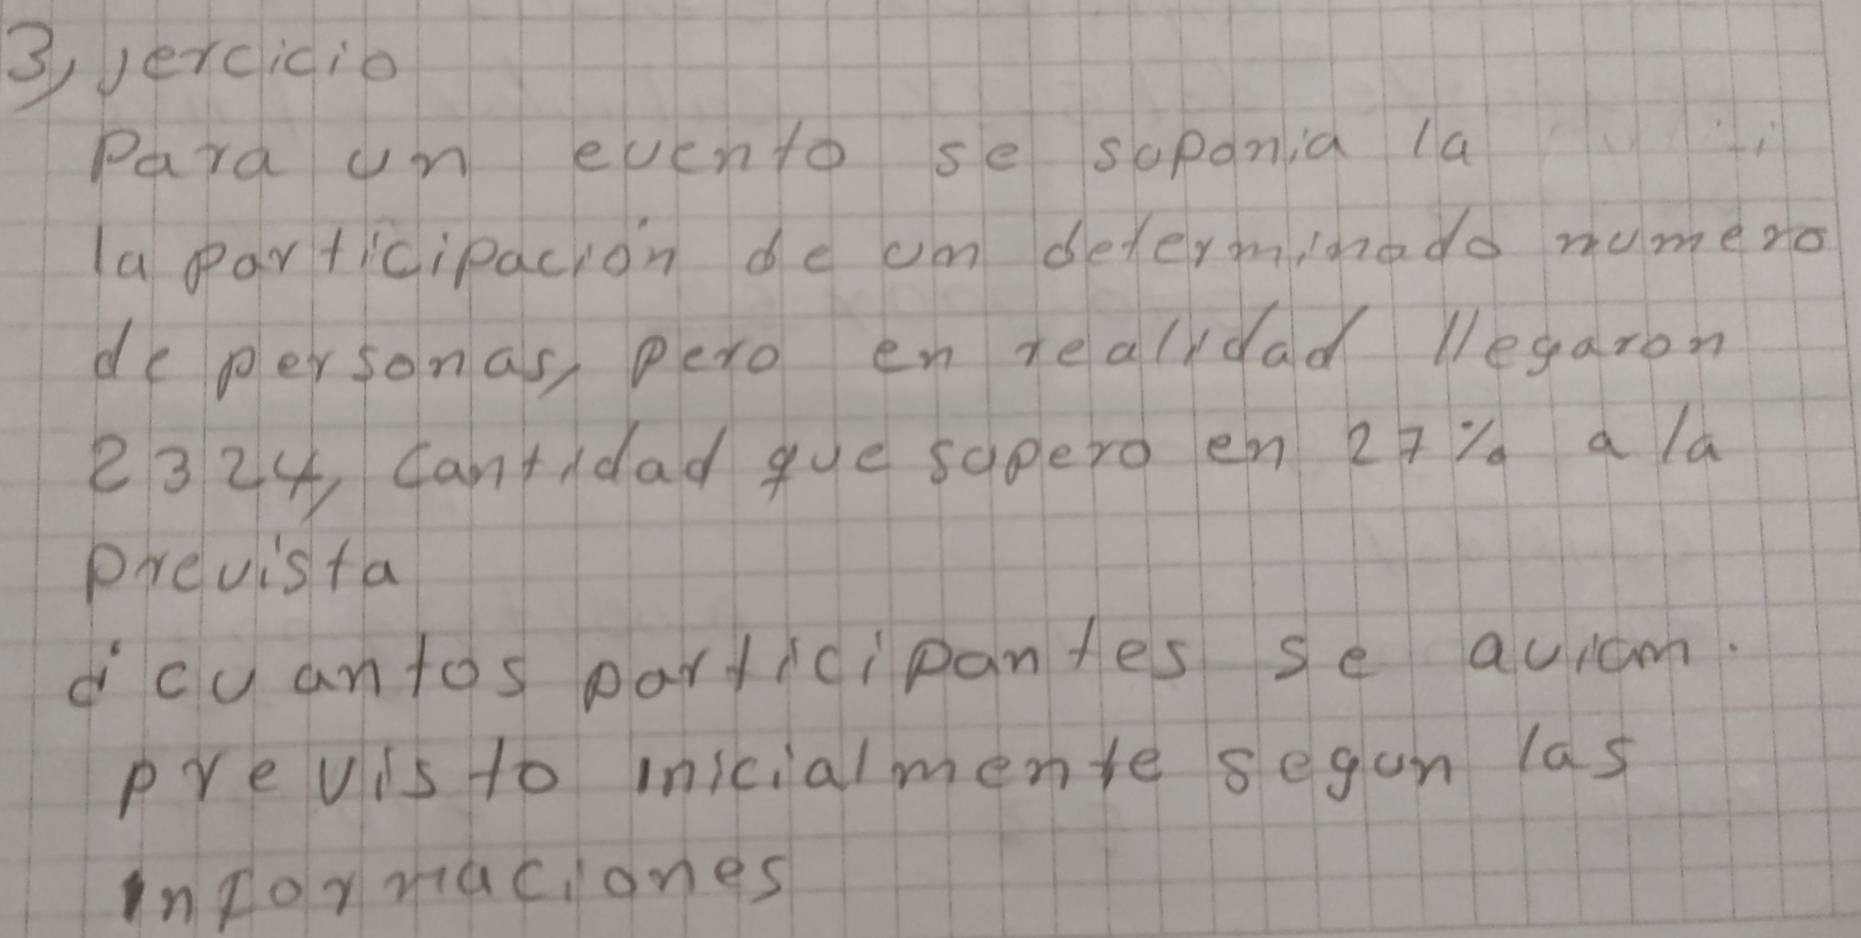 3, jercicio
Para un evento se suponia la
la participación de un determinado numero
de personas, pero en realidad llegaron
2324, cantidad que supero en 27% a la
prevista
¿cuantos participantes se avian.
previsto inicialmente segun las
informaciones